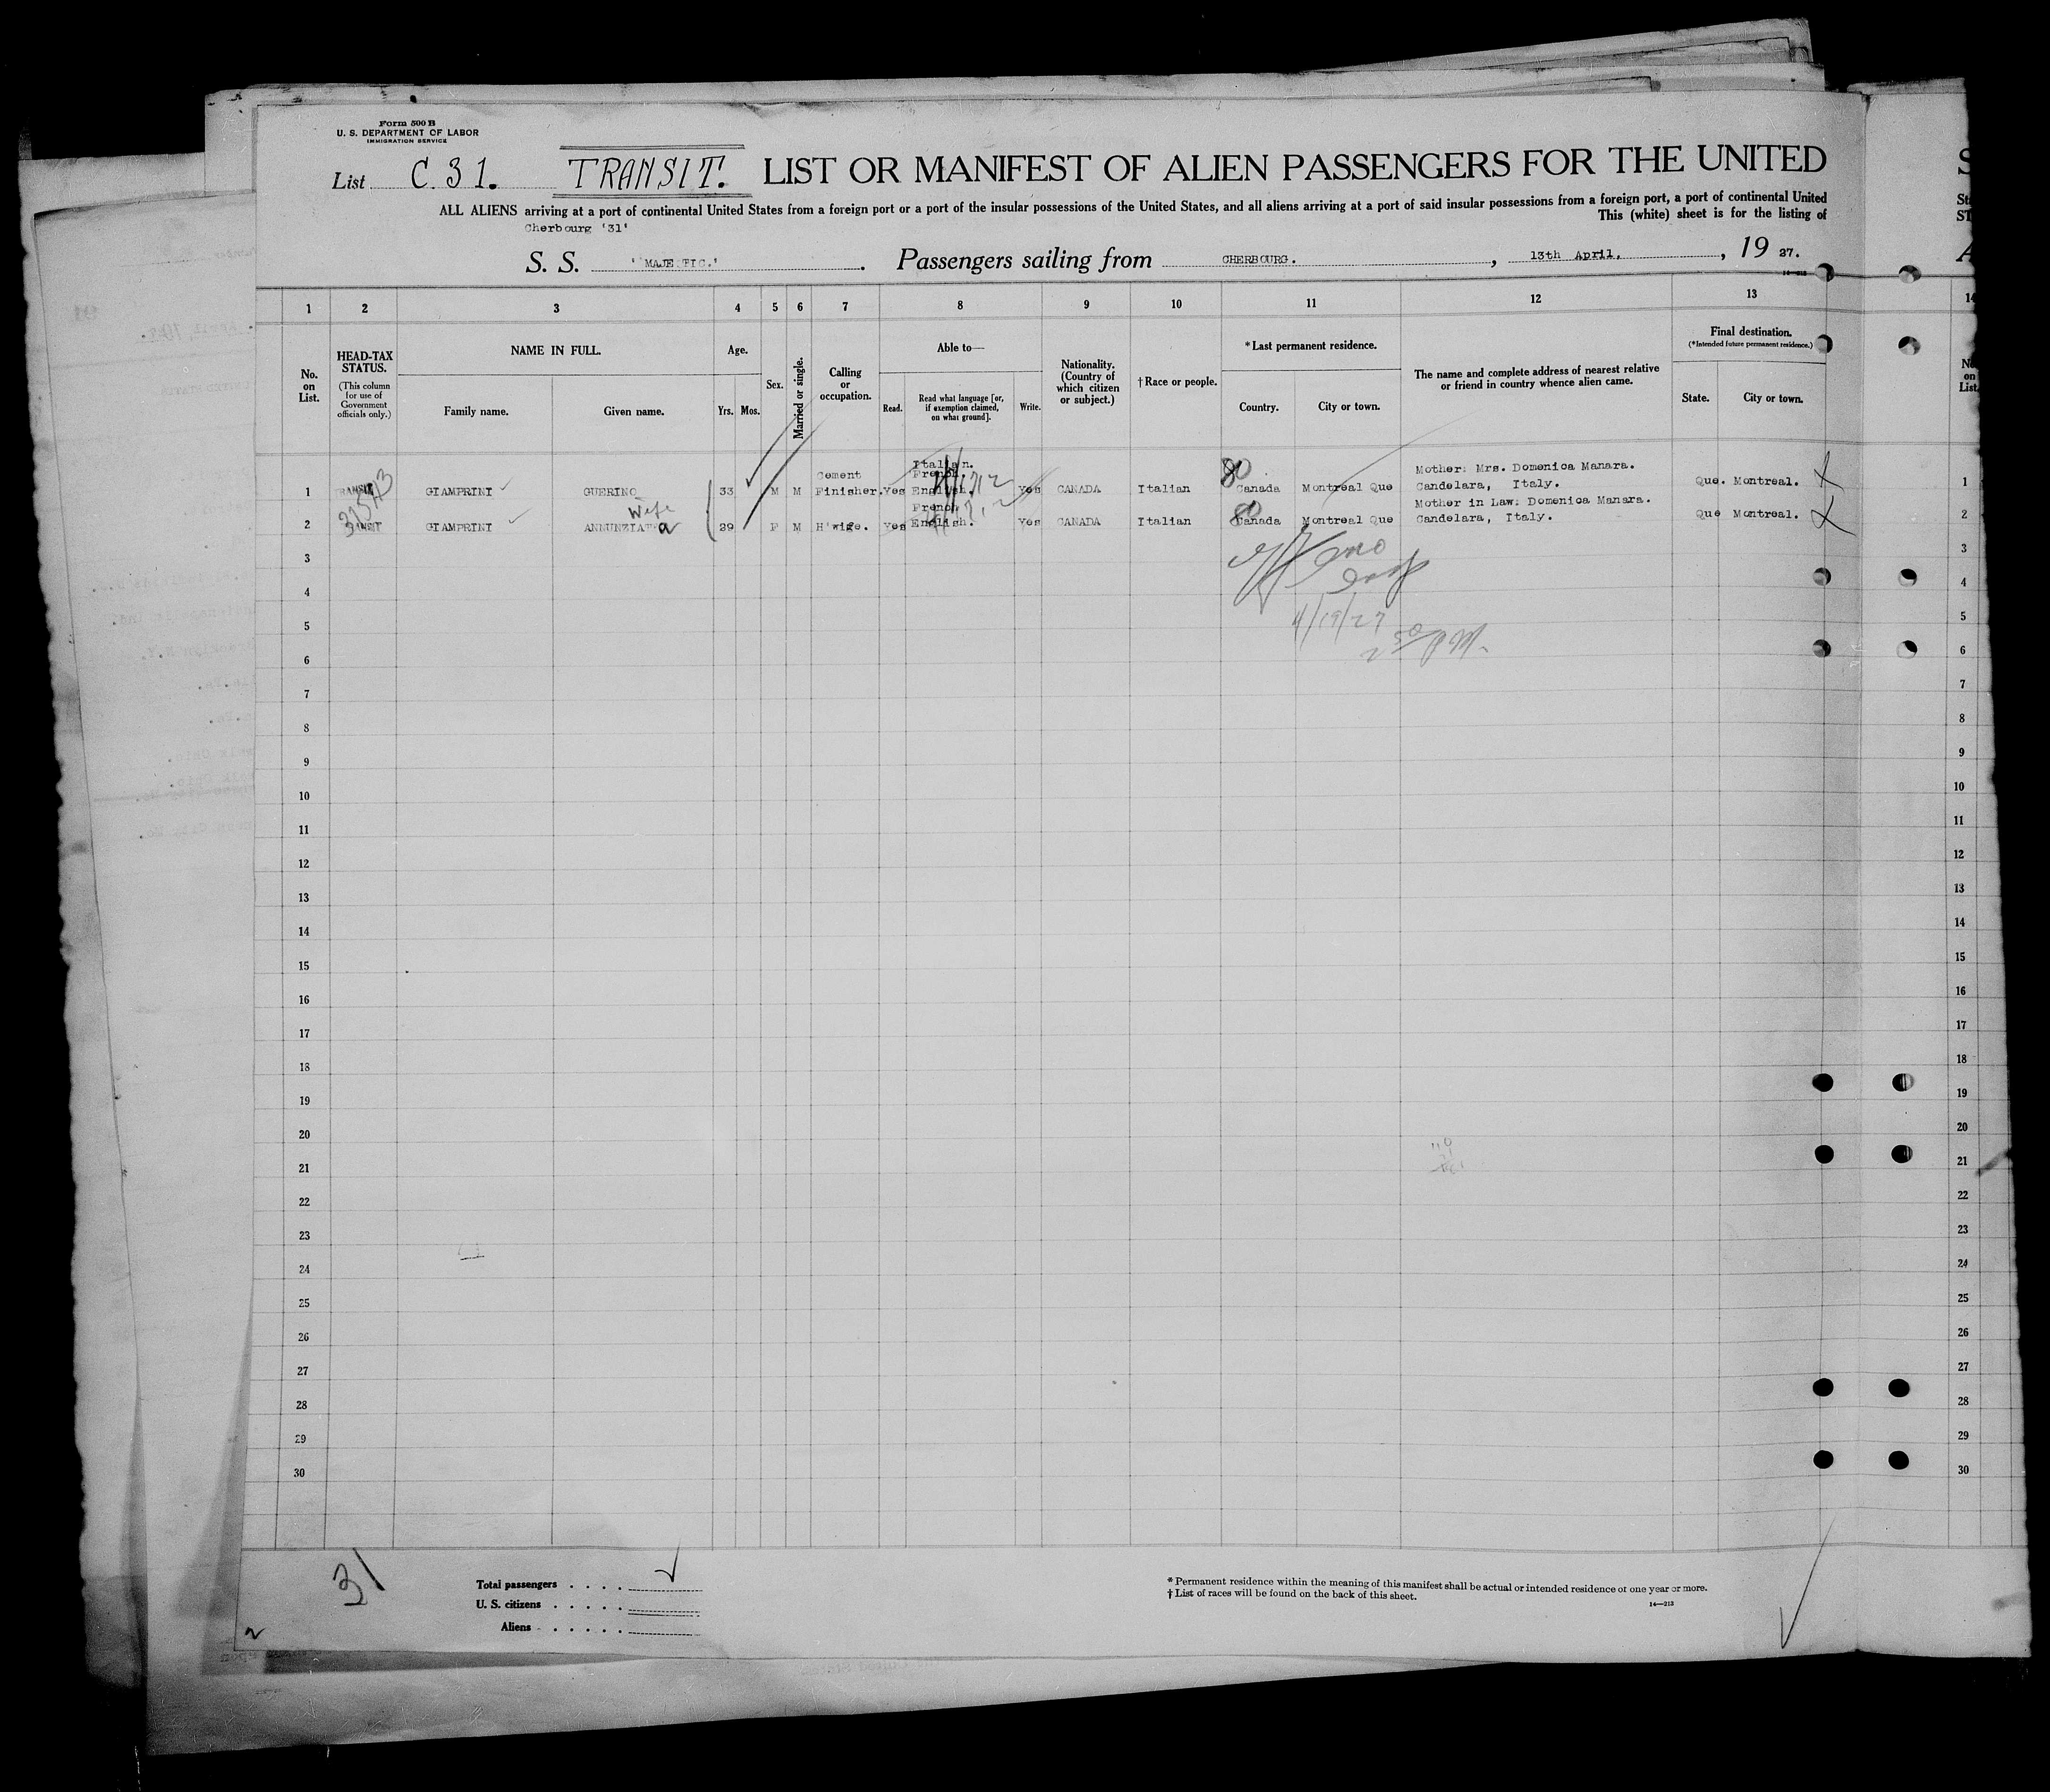 Form 500 B
U. S. DEPARTMENT OF LABOR
IMMIGRATION SERVICE
List C. 31. TRANSIT. LIST OR MANIFEST OF ALIEN PASSENGERS FOR THE UNITED
ALL ALIENS arriving at a port of continental United States from a foreign port or a port of the insular possessions of the United States, and all aliens arriving at a port of said insular possessions from a foreign port, a port of continental United
This (white) sheet is for the listing of
Cherbourg '31'
S. S. 'MAJESTIC.' Passengers sailing from CHERBOURG. , 13th April, , 19 27.
1 2 3 4 5 6 7 8 9 10 11 12 13 14
No. on List.
HEAD-TAX STATUS.
(This column for use of Government officials only.)
NAME IN FULL.
Family name. Given name.
Age.
Yrs. Mos.
Sex.
Married or single.
Calling or occupation.
Able to—
Read. Read what language [or, if exemption claimed, on what ground]. Write.
Nationality. (Country of which citizen or subject.)
† Race or people.
* Last permanent residence.
Country. City or town.
The name and complete address of nearest relative or friend in country whence alien came.
Final destination.
(*Intended future permanent residence.)
State. City or town.
No. on List
1 TRANSIT GIAMPRINI GUERINO 33 M M Cement Finisher. Yes Italian. French. English. Yes CANADA Italian 80 Canada Montreal Que Mother: Mrs. Domenica Manara. Candelara, Italy. Que. Montreal. X 1
Wife
2 TRANSIT GIAMPRINI ANNUNZIATA a 29 F M H'wife. Yes French English. Yes CANADA Italian 80 Canada Montreal Que Mother in Law: Domenica Manara. Candelara, Italy. Que Montreal. X 2
3 3
4 4
4/19/27
5 5
2 50 PM.
6 6
7 7
8 8
9 9
10 10
11 11
12 12
13 13
14 14
15 15
16 16
17 17
18 18
19 19
20 20
21 21
22 22
23 23
24 24
25 25
26 26
27 27
28 28
29 29
30 30
31
Total passengers
U. S. citizens
Aliens
* Permanent residence within the meaning of this manifest shall be actual or intended residence of one year or more.
† List of races will be found on the back of this sheet.
14—213